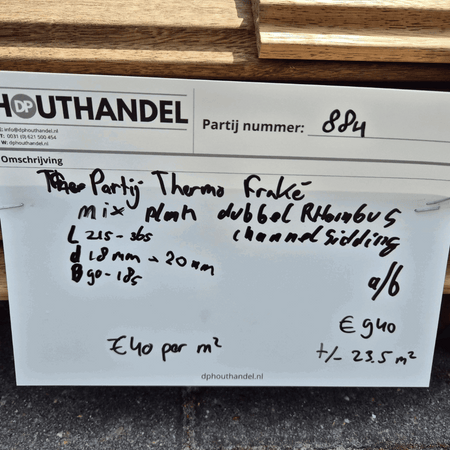 HOUTHANDEL
DP
info@dphouthandel.nl
T: 0031 (0) 621 500 454
W: dphouthandel.nl
Partij nummer: 884
Omschrijving
Partij Thermo Fraké
mix plank dubbel Rhombus
L 215-365 channel Sidding
d 18 mm → 20 mm
B 90-185 a/b
€ 940
€40 per m²
+/- 23.5 m²
dphouthandel.nl